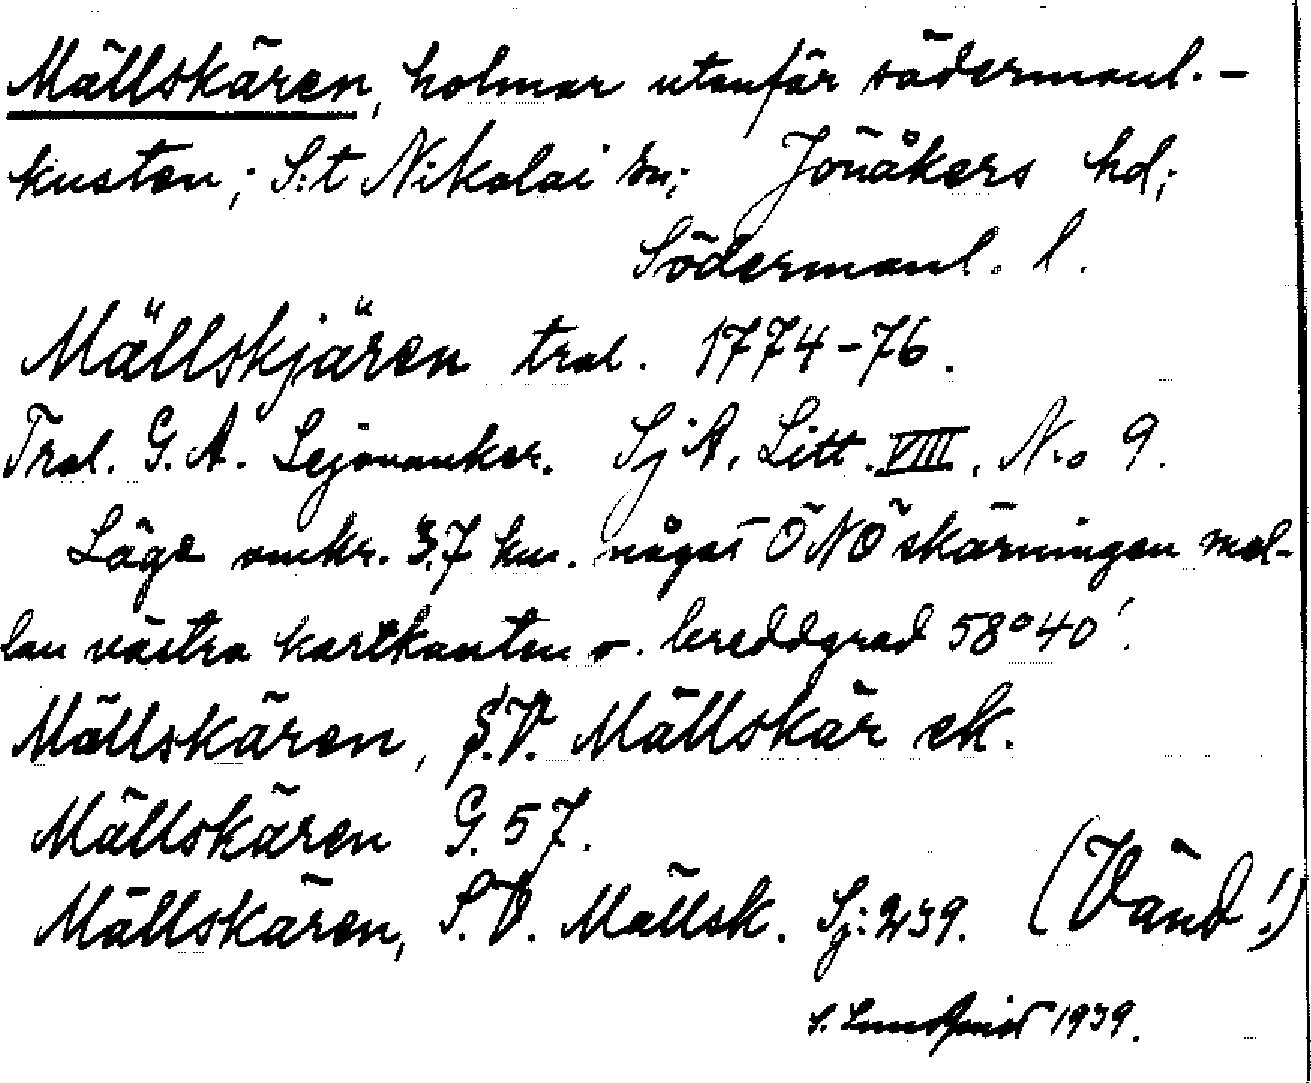 Mällskären, holmar utanför södermanl.-
kusten; S:t Nikolai sn; Jönåkers hd;
Södermanl. l.
Mällskjären tral. 1774-76.
Tral. G. A. Lejonanker. SjA. Litt. VIII. No 9.
Läge omkr. 3.7 km. något ÖNÖ skärningen mel-
lan västra kartkanten o. breddgrad 58°40'.
Mällskären, S.V. Mällskär ek.
Mällskären G. 57.
Mällskären, S.V. Mällsk. Sj: 239. (Vänd!)
S. Lundqvist 1939.